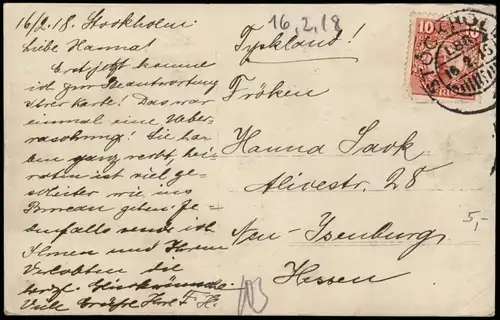 16/2.18. Stockholm.
Liebe Hanna!
Erst jetzt komme
ich zur Beantwortung
Ihrer Karte! Das war
einmal eine Ueber-
raschung! Sie haben
ganz recht, hei-
raten ist viel ge-
scheiter wie ins
Bureau gehen. Je-
denfalls sende ich
Ihnen und Ihrem
Verlobten die
herzl. Glückwünsche.
Viele Grüße
16,2,18
Tyskland!
Fröken
Hanna Sack
Olivestr. 28
Neu-Isenburg
Hessen
5,-
10
STOCKHOLM
16.2.18